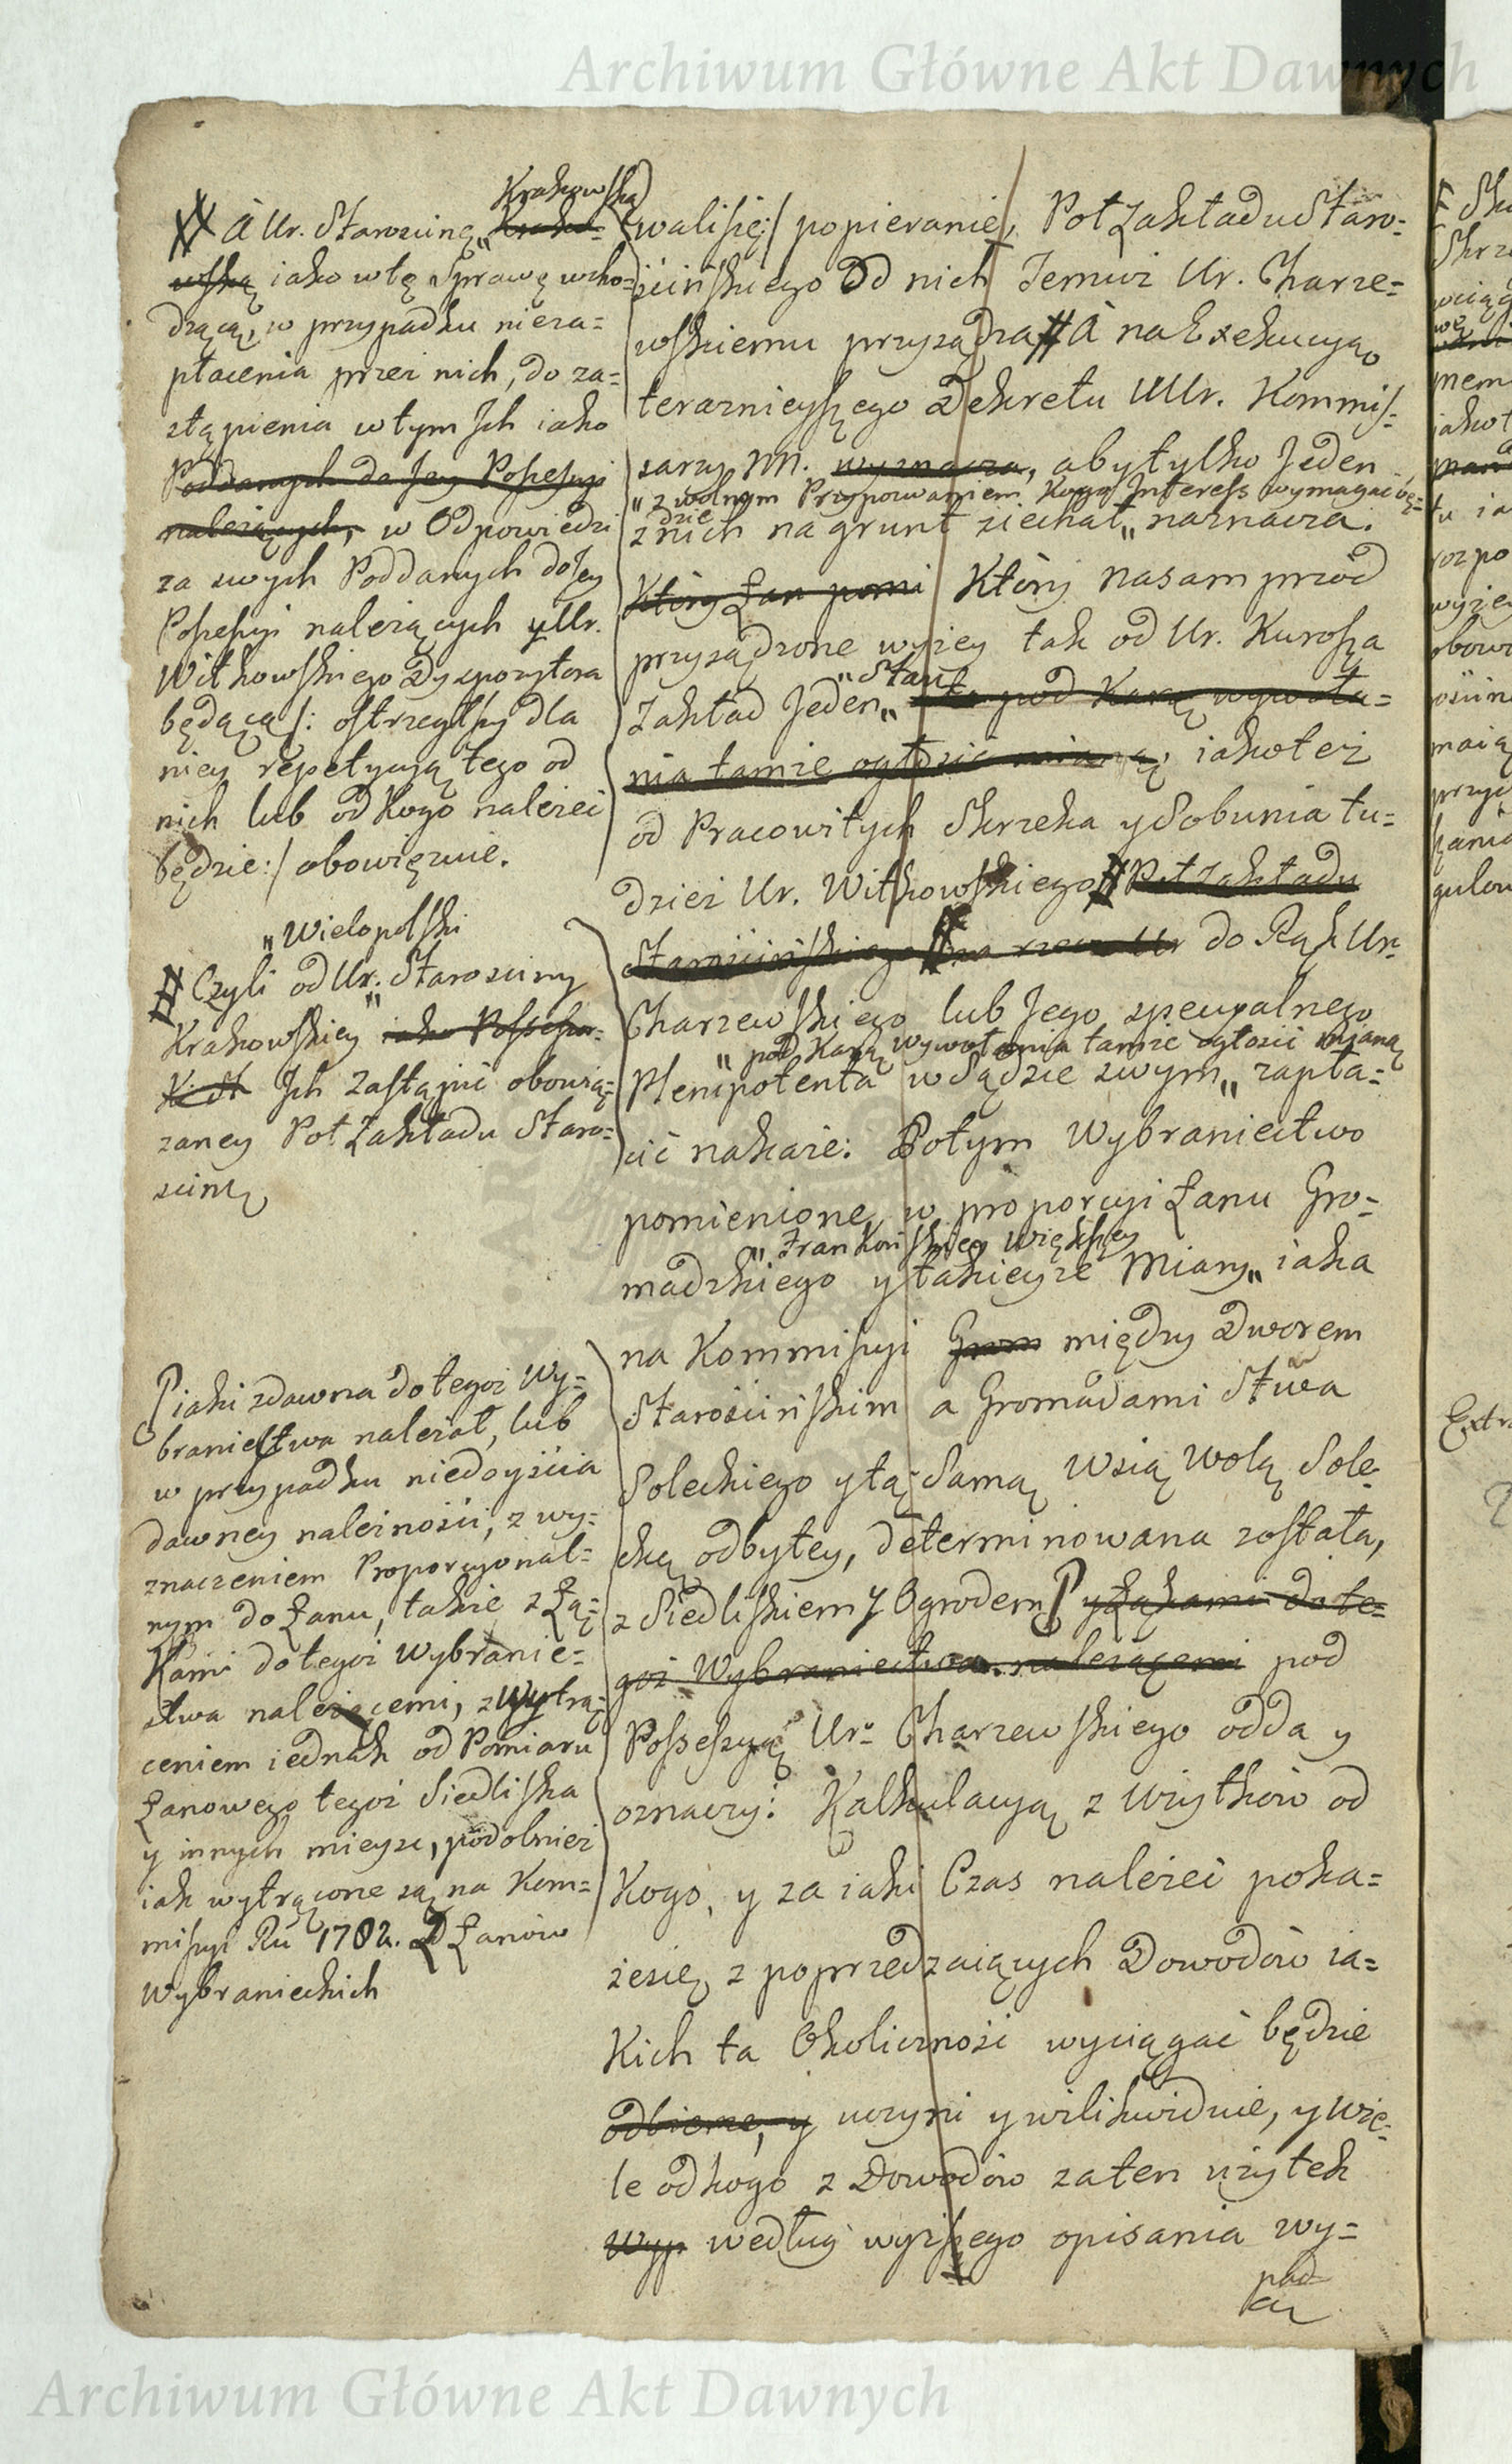 Archiwum Główne Akt Dawnych
Krakowską
# A Ur. Starościnę „ Krako=
wską iako w tę Sprawę wcho=
dzącą, w przypadku nieza=
płacenia przez nich, do za=
stąpienia w tym Ich iako
Poddanych do Jey Possessyi
należących, w Odpowiedzi
za swych Poddanych do Jey
Possessyi należących y Ur.
Witkowskiego Dyspozytora
będącą /: ostrzegłszy dla
niey repetycyą tego od
nich lub od Kogo należeć
będzie :/ obowięzuie.
„ Wielopolski
# Czyli od Ur. Starosciny
Krakowskiey iako Possessor=
Ich Zastąpić obowią=
zaney Poł Zakładu Staro=
ścińs
iaki zdawna do tegoż Wy=
braniectwa należał, lub
w przypadku niedoyścia
dawney należności, z wy=
znaczeniem Proporcyonal=
nym do Łanu, takze z Łą=
Kami do tegoż Wybranie=
ctwa należącemi, z Wytrą=
ceniem iednak od Pomiaru
Łanowego tegoż Siedliska
y innych mieysc, podobnież
iak wytrącone są na Kom=
missyi Ru 1782. Z Łanów
Wybranieckich
wali się :/ popieranie, Poł Zakładu Staro=
ścińskiego Od nich Temuż Ur. Charze=
wskiemu przysądza # A na Exekucyą
teraznieyszego Dekretu UUr. Kommis=
sarzy NN. wyznacza, aby tylko Jeden
„ z wolnym Przyzowaniem Kogo Interess wymagać bę=
dzie
z nich na grunt ziechał „ naznacza.
Który Łan pomi Który nasamprzód
przysądzone wyżey tak od Ur. Kurosza
„ Stau
Zakład Jeden „ pod Karą wywoła=
nia tamże ogłosić mianą, iakoteż
od Pracowitych Skrzeka y Sobunia tu=
dzież Ur. Witkowskiego # Poł zakładu
Starościńskiego # na rzecz Ur do Rąk Ur.
Charzewskiego lub Jego specyalnego
„ pod Karą wywołania tamże ogłosić mianą
Plenipotenta w Sądzie swym „ zapła=
cić nakaże: Potym Wybraniectwo
pomienione w proporcyi Łanu Gro=
„ Frankońskiey większey
madzkiego y takieyże Miary „ iaka
na Kommissyi Grom między Dworem
Starościńskim a Gromadami Stwa
Soleckiego y tą Samą Wsią Wolą Sole=
cką odbytey, determinowana została,
z Siedliskiem y Ogrodem y Łąkami do te=
goż Wybraniectwa należącemi pod
Possessyą Ur. Charzewskiego odda y
oznaczy: Kalkulacyą z Użytków od
Kogo, y za iaki Czas należeć poka=
że się z poprzedzaiących Dowodów ia=
Kich ta Okoliczność wyciągać będzie
odbierze, y uczyni y wylikwiduie, y wie=
le od kogo z Dowodów za ten użytek
Wyp według wyższego opisania wy=
pad
Archiwum Główne Akt Dawnych